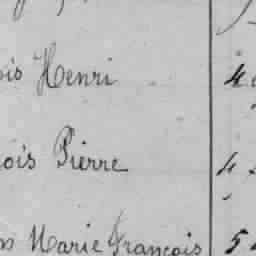 ois Henri 4
ois Pierre 4
Marie François 5